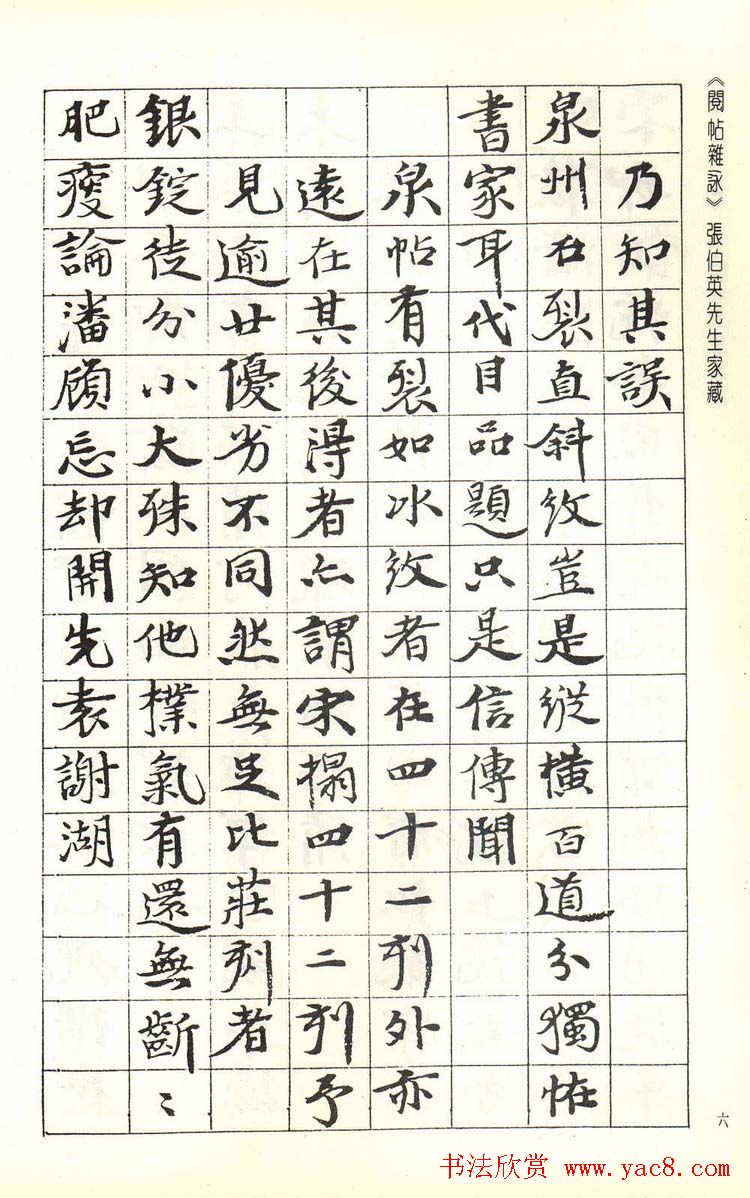 《閱帖雜詠》張伯英先生家藏
乃知其誤
泉州石裂直斜紋豈是縱橫百道分獨怪
書家耳代目品題只是信傳聞
泉帖有裂如冰紋者在四十二刻外亦
遠在其後得者亦謂宋搨四十二刻予
見逾廿優劣不同然無足比莊刻者
銀錠徒分小大殊知他樸氣有還無齗〻
肥瘦論潘顧忘却開先袁謝湖
六
书法欣赏 www.yac8.com